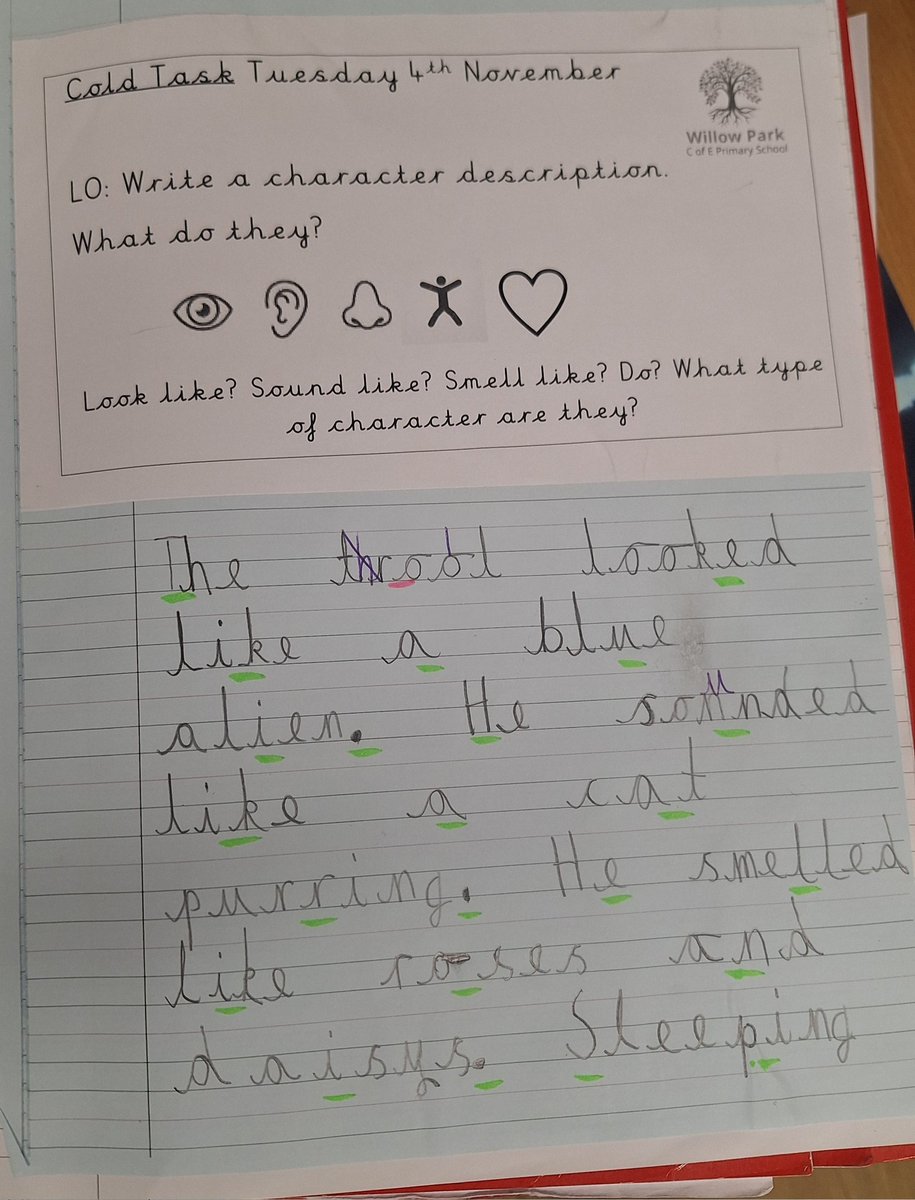 Cold Task Tuesday 4th November
Willow Park
C of E Primary School
LO: Write a character description.
What do they?
Look like? Sound like? Smell like? Do? What type
of character are they?
The looked
like a blue
alien. He sounded
like a cat
purring. He smelled
like roses and
daisys. Sleeping